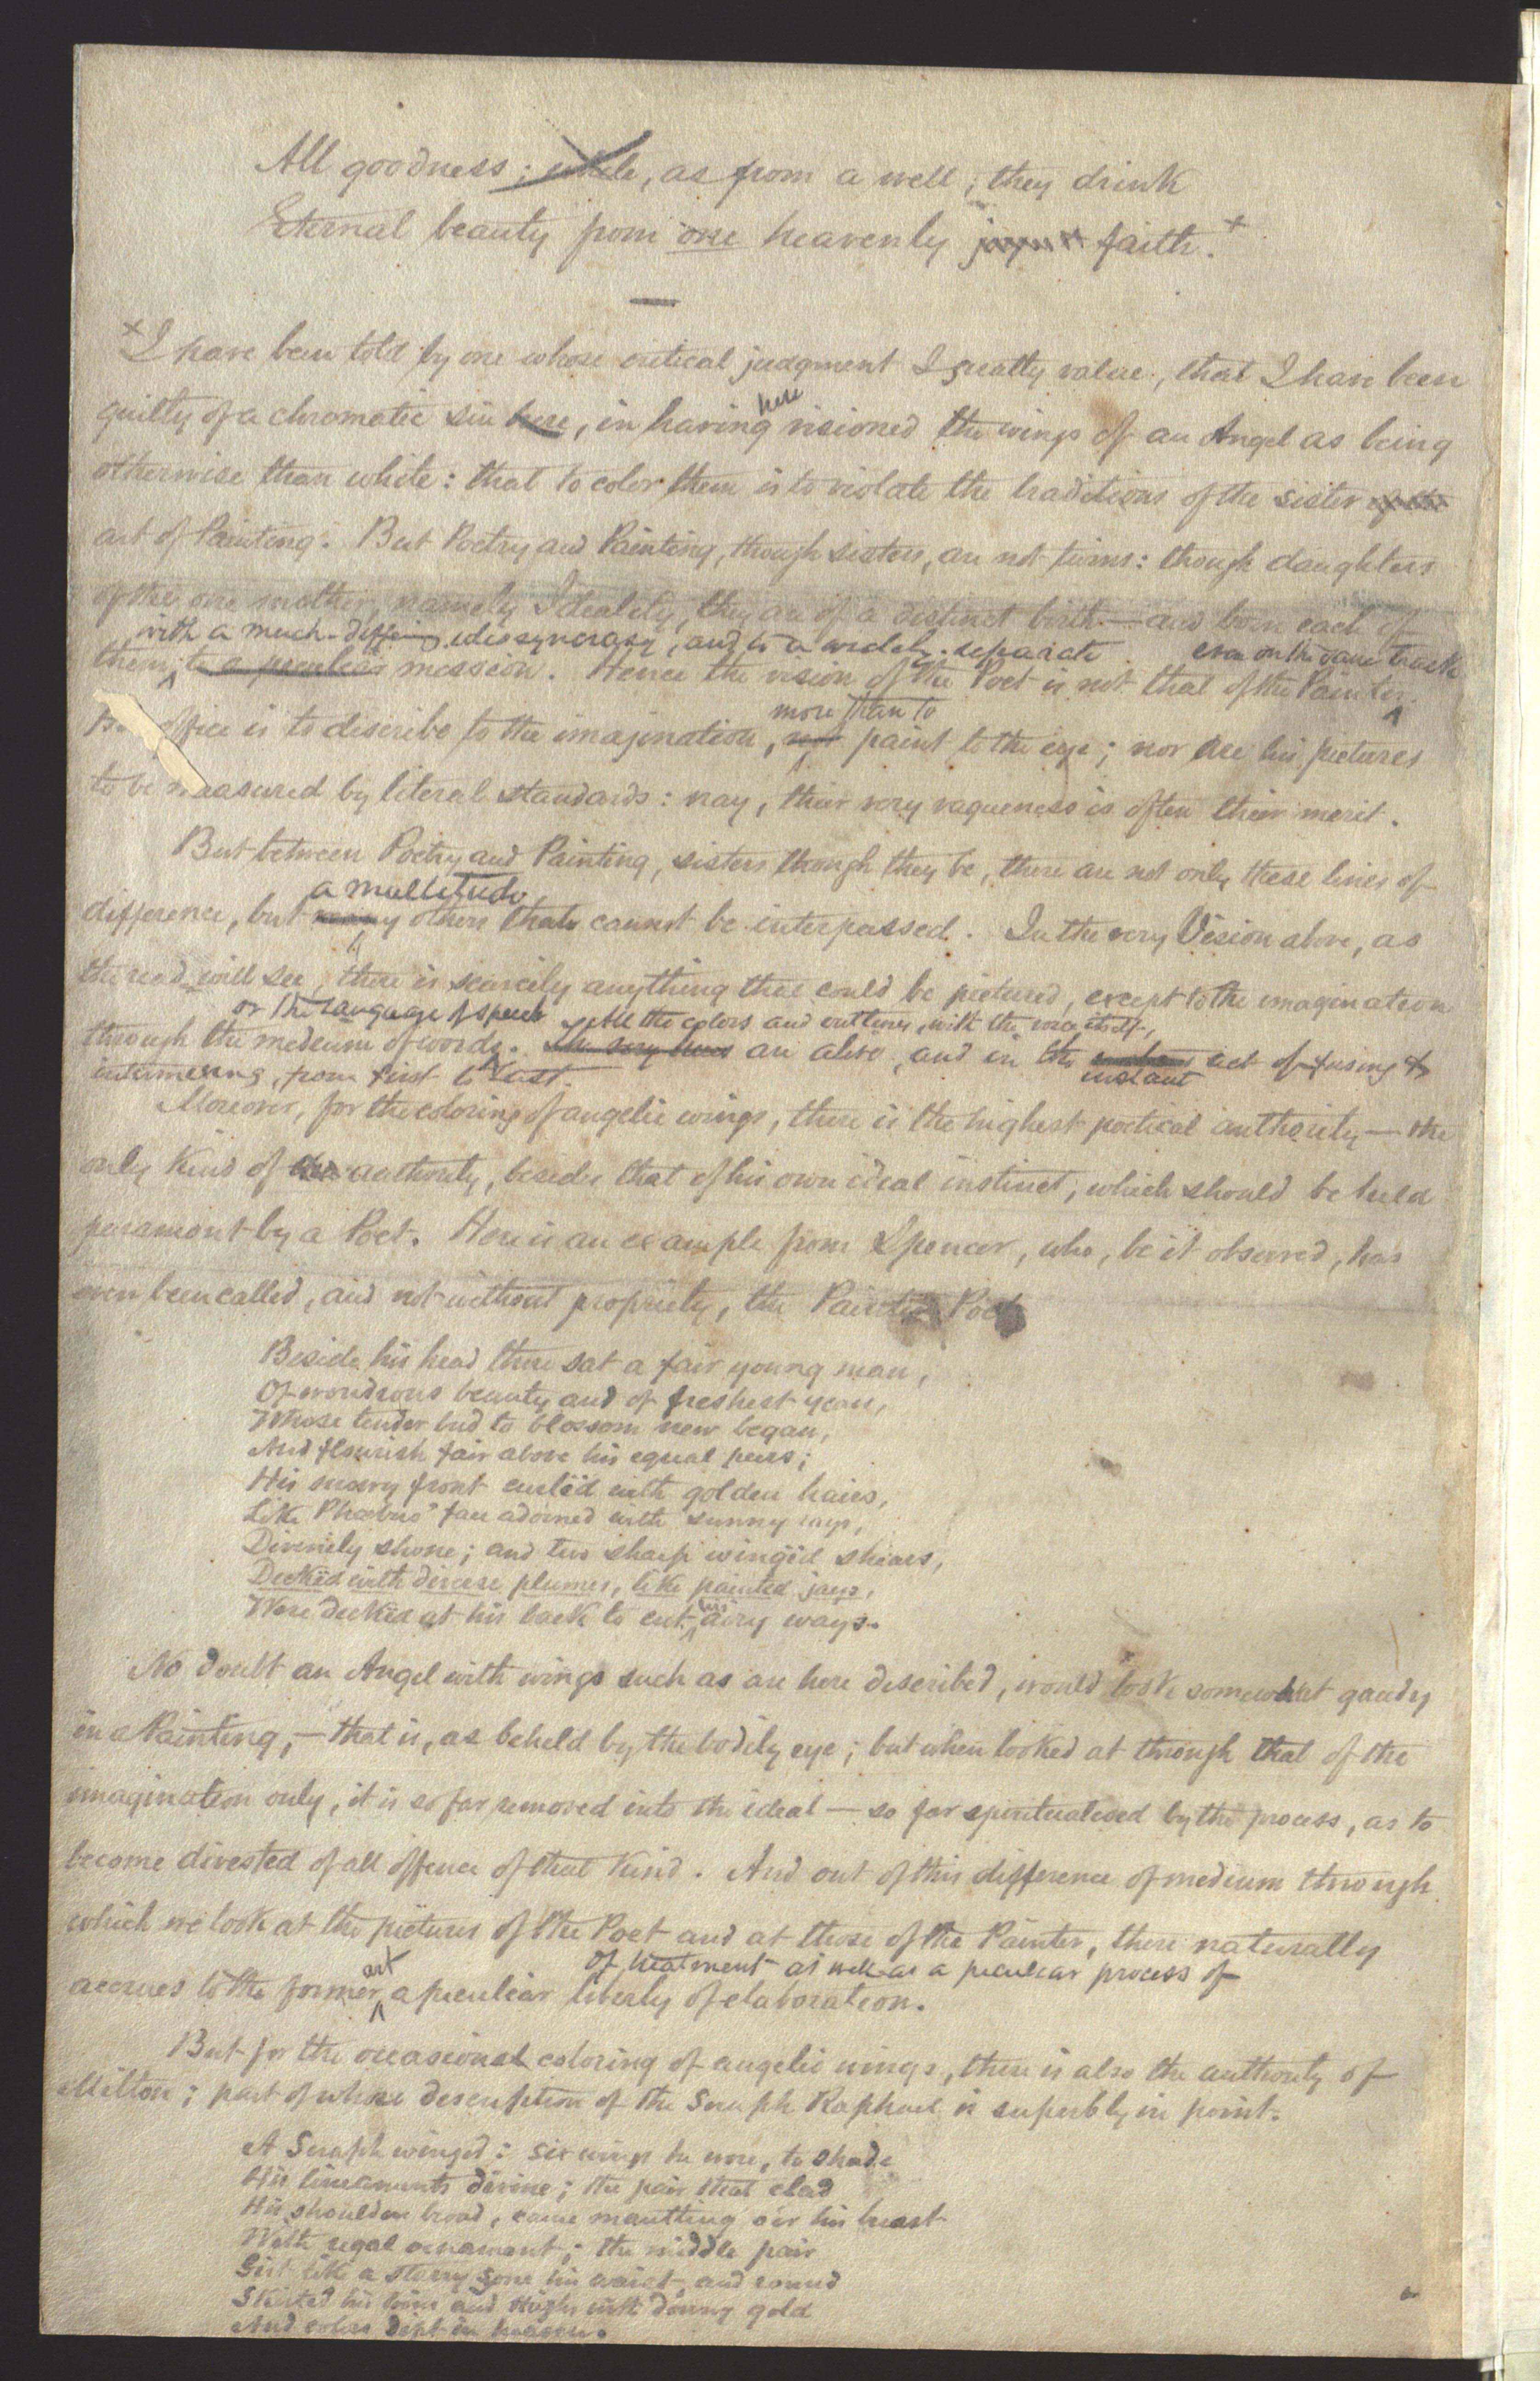 All goodness; while, as from a well, they drink
Eternal beauty from one heavenly faith.+
+I have been told by one whose critical judgment I greatly value, that I have been
guilty of a chromatic sin here, in having here visioned the wings of an Angel as being
otherwise than white: that to color them is to violate the traditions of the sister of the
art of Painting. But Poetry and Painting, though sisters, are not twins: though daughters
of the one mother, namely Ideality, they are of a distinct birth — and born each of
with a much-differing idiosyncrasy, and to a widely separate even on the same track
them, to a peculiar mission. Hence the vision of the Poet is not that of the Painter.
more than to
office is to describe to the imagination, not paint to the eye; nor are his pictures
to be measured by literal standards: nay, their very vagueness is often their merit.
But between Poetry and Painting, sisters though they be, there are not only these lines of
a multitude
difference, but many others that cannot be interpassed. In the very Vision above, as
the read will see, there is scarcely anything that could be pictured, except to the imagination
or the language of speech All the colors and outlines, with the voice itself,
through the medium of words. The very hues are alive, and in the instant act of fusing &
intermixing, from first to last.
Moreover, for the coloring of angelic wings, there is the highest poetical authority — the
only kind of authority, besides that of his own ideal instinct, which should be held
paramont by a Poet. Here is an example from Spencer, who, be it observed, has
even been called, and not without propriety, the Painter Poet
Beside his head there sat a fair young man,
Of wondrous beauty and of freshest years,
Whose tender bud to blossom new began,
And flourish fair above his equal peers;
His snowy front curlëd with golden hairs,
Like Phœbus' face adorned with sunny rays,
Divinely shone; and two sharp wingëd shears,
Deckëd with diverse plumes, like painted jays,
Were deckëd at his back to cut his airy ways.
No doubt an Angel with wings such as are here described, would look somewhat gaudy
in a Painting, — that is, as beheld by the bodily eye; but when looked at through that of the
imagination only, it is so far removed into the ideal — so far spiritualised by the process, as to
become divested of all offence of that kind. And out of this difference of medium through
which we look at the pictures of the Poet and at those of the Painter, there naturally
art of treatment as well as a peculiar process of
accrues to the former a peculiar liberty of elaboration.
But for the occasional coloring of angelic wings, there is also the authority of
Milton; part of whose description of the Seraph Raphael is superbly in point.
A Seraph winged: six wings he wore, to shade
His lineaments divine; the pair that clad
His shoulders broad, came mantling o'er his breast
With regal ornament; the middle pair
Girt like a starry zone his waist, and round
Skirted his loins and thighs with downy gold
And colors dipt in heaven.